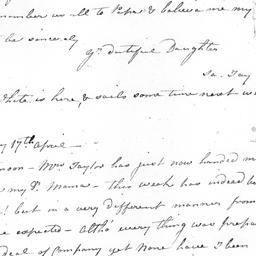 remember us all to Papa & believe me my
be sincerely
yr. dutiful Daughter
Sa. Tay
White is here, & sails some time next w
y 17th April —
noon — Mrs. Taylor has just now handed m
my Dr. Mama — this week has indeed be
! but in a very different manner from
e expected — Altho' every thing was prepar
deal of Company yet None have I been